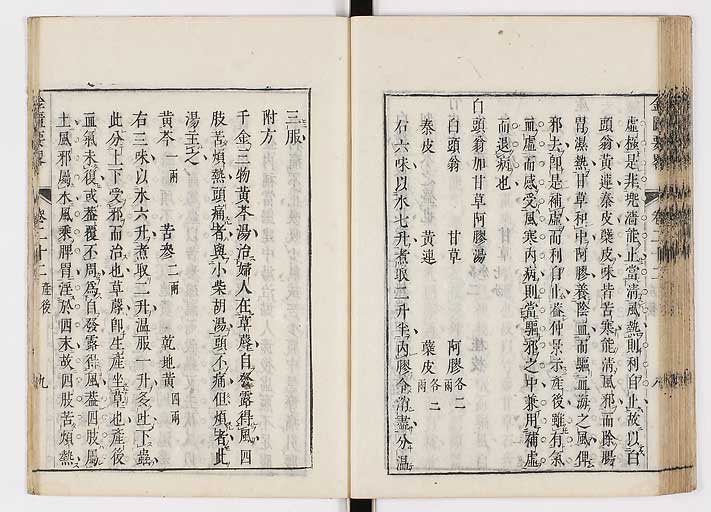 虛極是非兜濇能止當清風熱則利自止故以白
頭翁黃連秦皮蘗皮味皆苦寒能清風邪而除腸
胃濕熱甘草和中阿膠養陰血而驅血海之風俾
邪去卽是補虛而利自止葢仲景示產後雖有氣
血虛而感受風寒内病則當驅邪之中兼用補虛
而退病也
白頭翁加甘草阿膠湯
白頭翁 甘草 阿膠各二兩
秦皮 黃連 蘗皮各二兩
右六味以水七升煮取二升半内膠令消盡分温
三服
附方
千金三物黃芩湯治婦人在草蓐自發露得風四
肢苦煩熱頭痛者與小柴胡湯頭不痛但煩者此
湯主之
黃芩一兩 苦參二兩 乾地黃四兩
右三味以水六升煮取二升溫服一升多吐下蟲
此分上下受邪而治也草蓐卽生產坐草也產後
血氣未復或葢覆不周爲自發露得風葢四肢屬
土風邪屬木風乘脾胃淫於四末故四肢苦煩熱
金匱要畧 卷二十二 產後 九